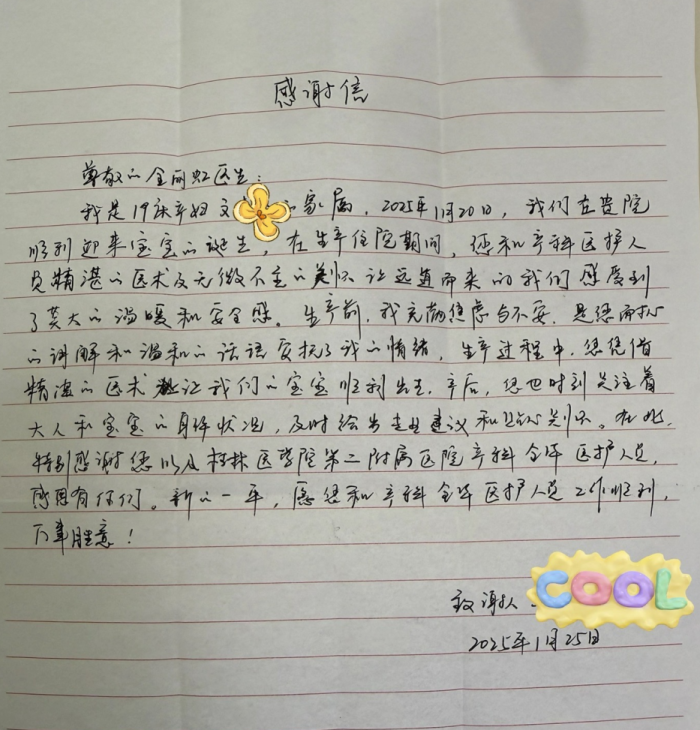 感谢信
尊敬的全丽虹医生：
我是19床产妇文的家属，2025年1月20日，我们在贵院
顺利迎来宝宝的诞生，在生产住院期间，您和产科医护人
员精湛的医术及无微不至的关怀让远道而来的我们感受到
了莫大的温暖和安全感。生产前，我充满焦虑与不安，是您耐心
的讲解和温和的话语安抚了我的情绪，生产过程中，您凭借
精湛的医术让我们的宝宝顺利出生，产后，您也时刻关注着
大人和宝宝的身体状况，及时给出专业建议和贴心关怀。在此，
特别感谢您以及桂林医学院第二附属医院产科全体医护人员，
感恩有你们。新的一年，愿您和产科全体医护人员工作顺利，
万事胜意！
致谢人
COOL
2025年1月25日